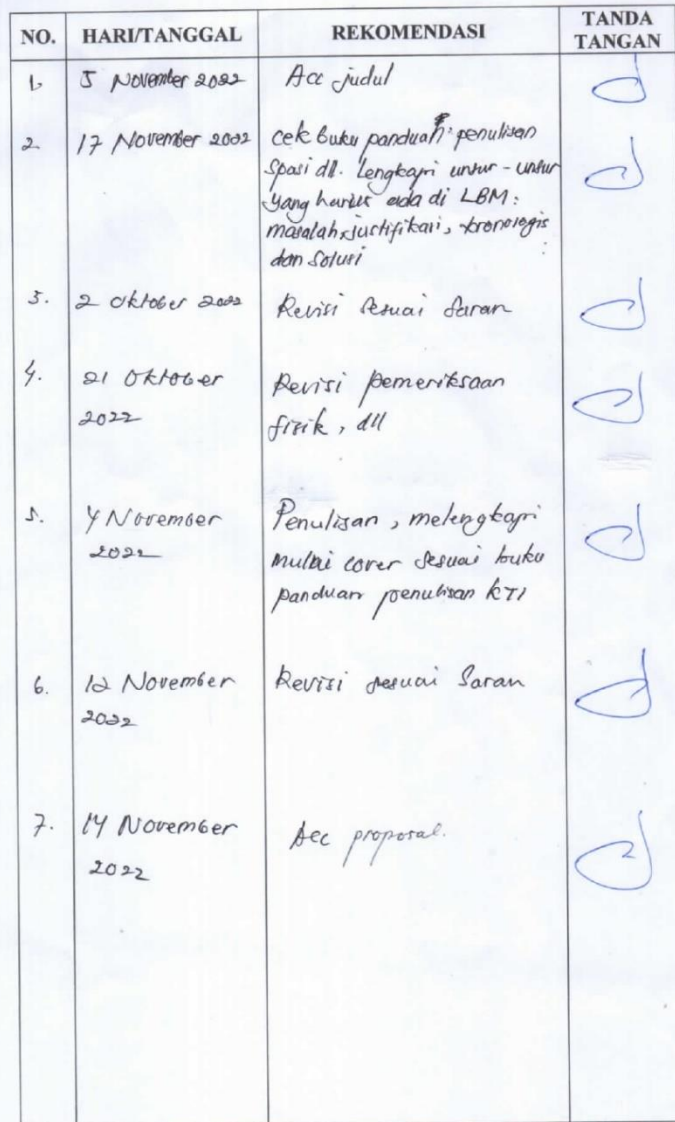 NO. HARI/TANGGAL REKOMENDASI TANDA TANGAN
1. 5 November 2022 Acc judul
2. 17 November 2022 cek buku panduan: penulisan
spasi dll. Lengkapi unsur-unsur
yang harus ada di LBM:
masalah, justifikasi, kronologis
dan solusi
3. 2 Oktober 2022 Revisi sesuai saran
4. 21 Oktober Revisi pemeriksaan
2022 fisik, dll
5. 4 November Penulisan, melengkapi
2022 mulai cover sesuai buku
panduan penulisan KTI
6. 12 November Revisi sesuai saran
2022
7. 14 November Acc proposal.
2022